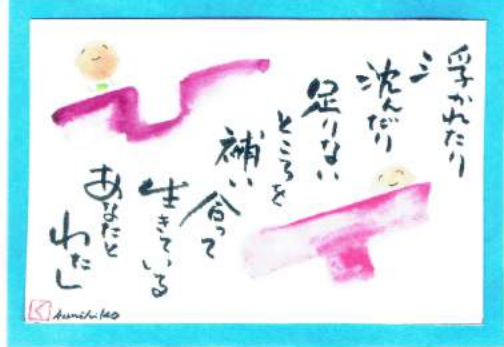 浮かれたり
沈んだり
足りない
ところを
補い合って
生きている
あなたと
わたし
kunihiko